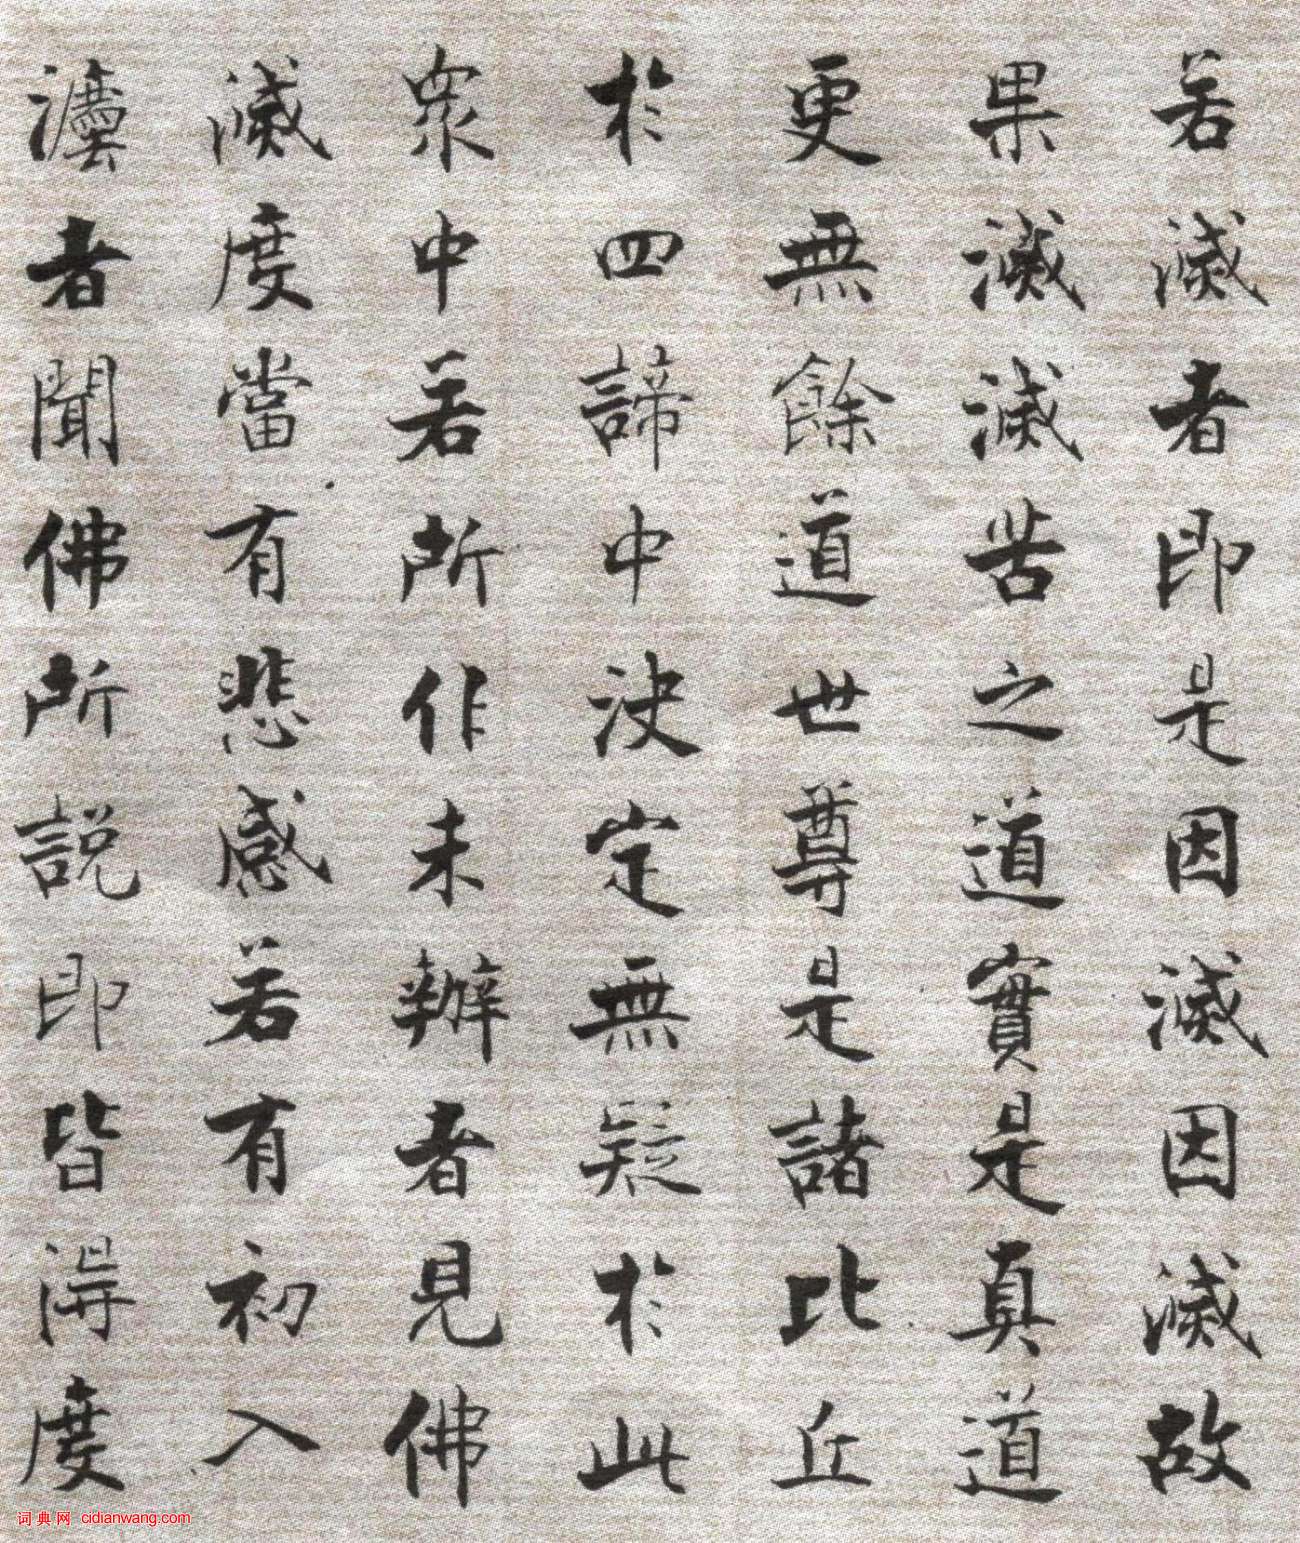 若滅者即是因滅因滅故
果滅滅苦之道實是真道
更無餘道世尊是諸比丘
於四諦中決定無疑於此
眾中若所作未辦者見佛
滅度當有悲感若有初入
法者聞佛所說即皆得度
词典网 cidianwang.com